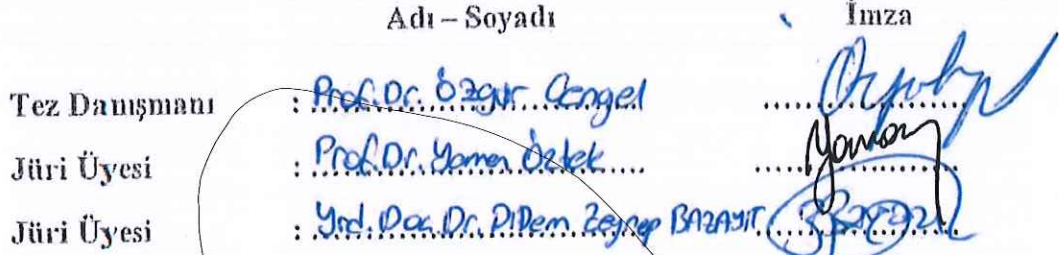 Adı – Soyadı İmza
Tez Danışmanı : Prof. Dr. Özgür Çengel
Jüri Üyesi : Prof. Dr. Yaman Öztek
Jüri Üyesi : Yrd. Doç. Dr. DİDem Zeynep BAZAYİT